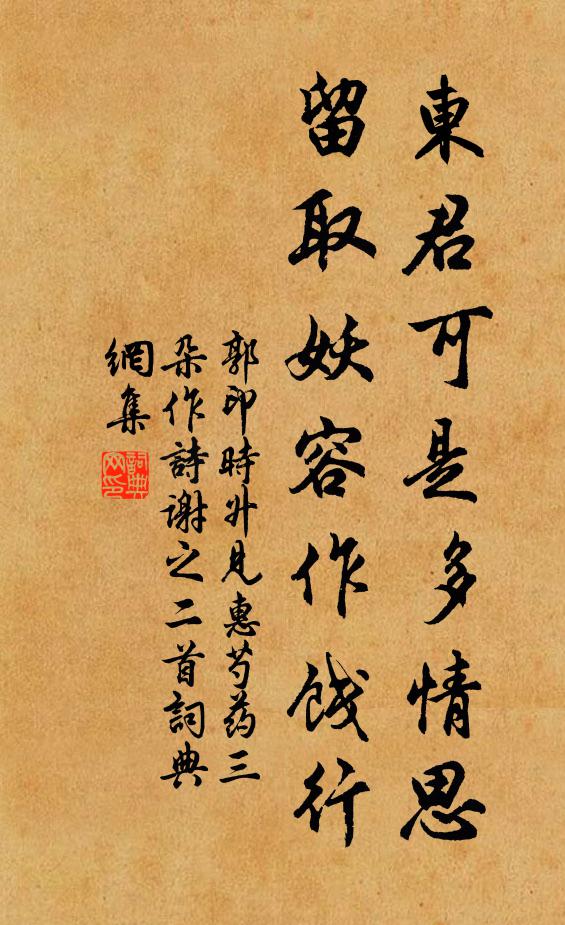 東君可是多情思
留取妖容作餞行
郭印時升見惠芍药三
朵作詩谢之二首詞典
網集
詞典
网印